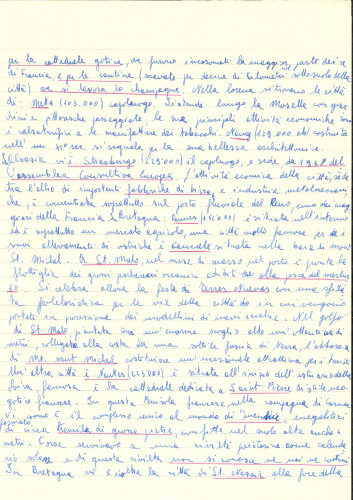 per la cattedrale gotica, ove furono incoronati la maggior parte dei re
di Francia, e per le cantine (scavate per decine di kilometri sottosuolo della
città) ove si lavora lo champagne. Nella lorena si trovano le città
di: Metz (103.000) capoluogo. Si stende lungo la Mosella con giar
dini e pittoresche passeggiate, le sue principali attività economiche sono
i calzaturifici e le manifatture dei tabacchi. Nancy (129.000 ab) costruita
nell' un si segnala per la sua bellezza architettonica.
Alsazia vi è Strasburgo (229.000) il capoluogo, e sede da 1949 del
l'assemblea Consultiva Europea, l'attività economica della città, si de
tra l'altro di importanti fabbriche di birra, e industrie metalmeccani
che, è concentrata soprattutto sul porto fluviale del Reno, uno dei mag
giori della Francia. Bretagna: Rennes è situata nell'interno
ed è soprattutto un mercato agricolo, una città molto famosa per i
suoi allevamenti di ostriche è Cancale situata nella baia di mont
St. Michel. A St. Malo, nel mese di marzo nel porto è pronta la
flottiglia dei grossi pescherecci oceanici adibiti alla pesca del merluz
zo. Si celebra allora la festa di Terres Nuevas con una sfila
ta folcloristica per le vie della città do in cui vengono
portati in processione dei modellini di navi vecchie. Nel golfo
di St. Malo, piantata su un'enorme scoglio alto un'ottantina di
metri collegato alla costa da una sottile fascia di terra, l'abbazia
di Mt. Saint Michel costituisce un'eccezionale attrattiva per i turisti
Un'altra città è Nantes (265.000) è situata all'inizio dell'estuario della
loira, famosa è la cattedrale dedicata a Saint Pierre in stile neo
gotico francese. In questa Penisola francese, nella campagna di Carnac
vi sono è il complesso unico al mondo di "menhir", megalitici
formato
di circa tremila di grosse pietre, conficcate nel suolo alte anche
metri. Esse servivano a una civiltà preistorica come calenda
rio solare e di questa civiltà non si conosce nè nei nè costumi
In Bretagna vi è inoltre la città di St. Nazaire alla foce della